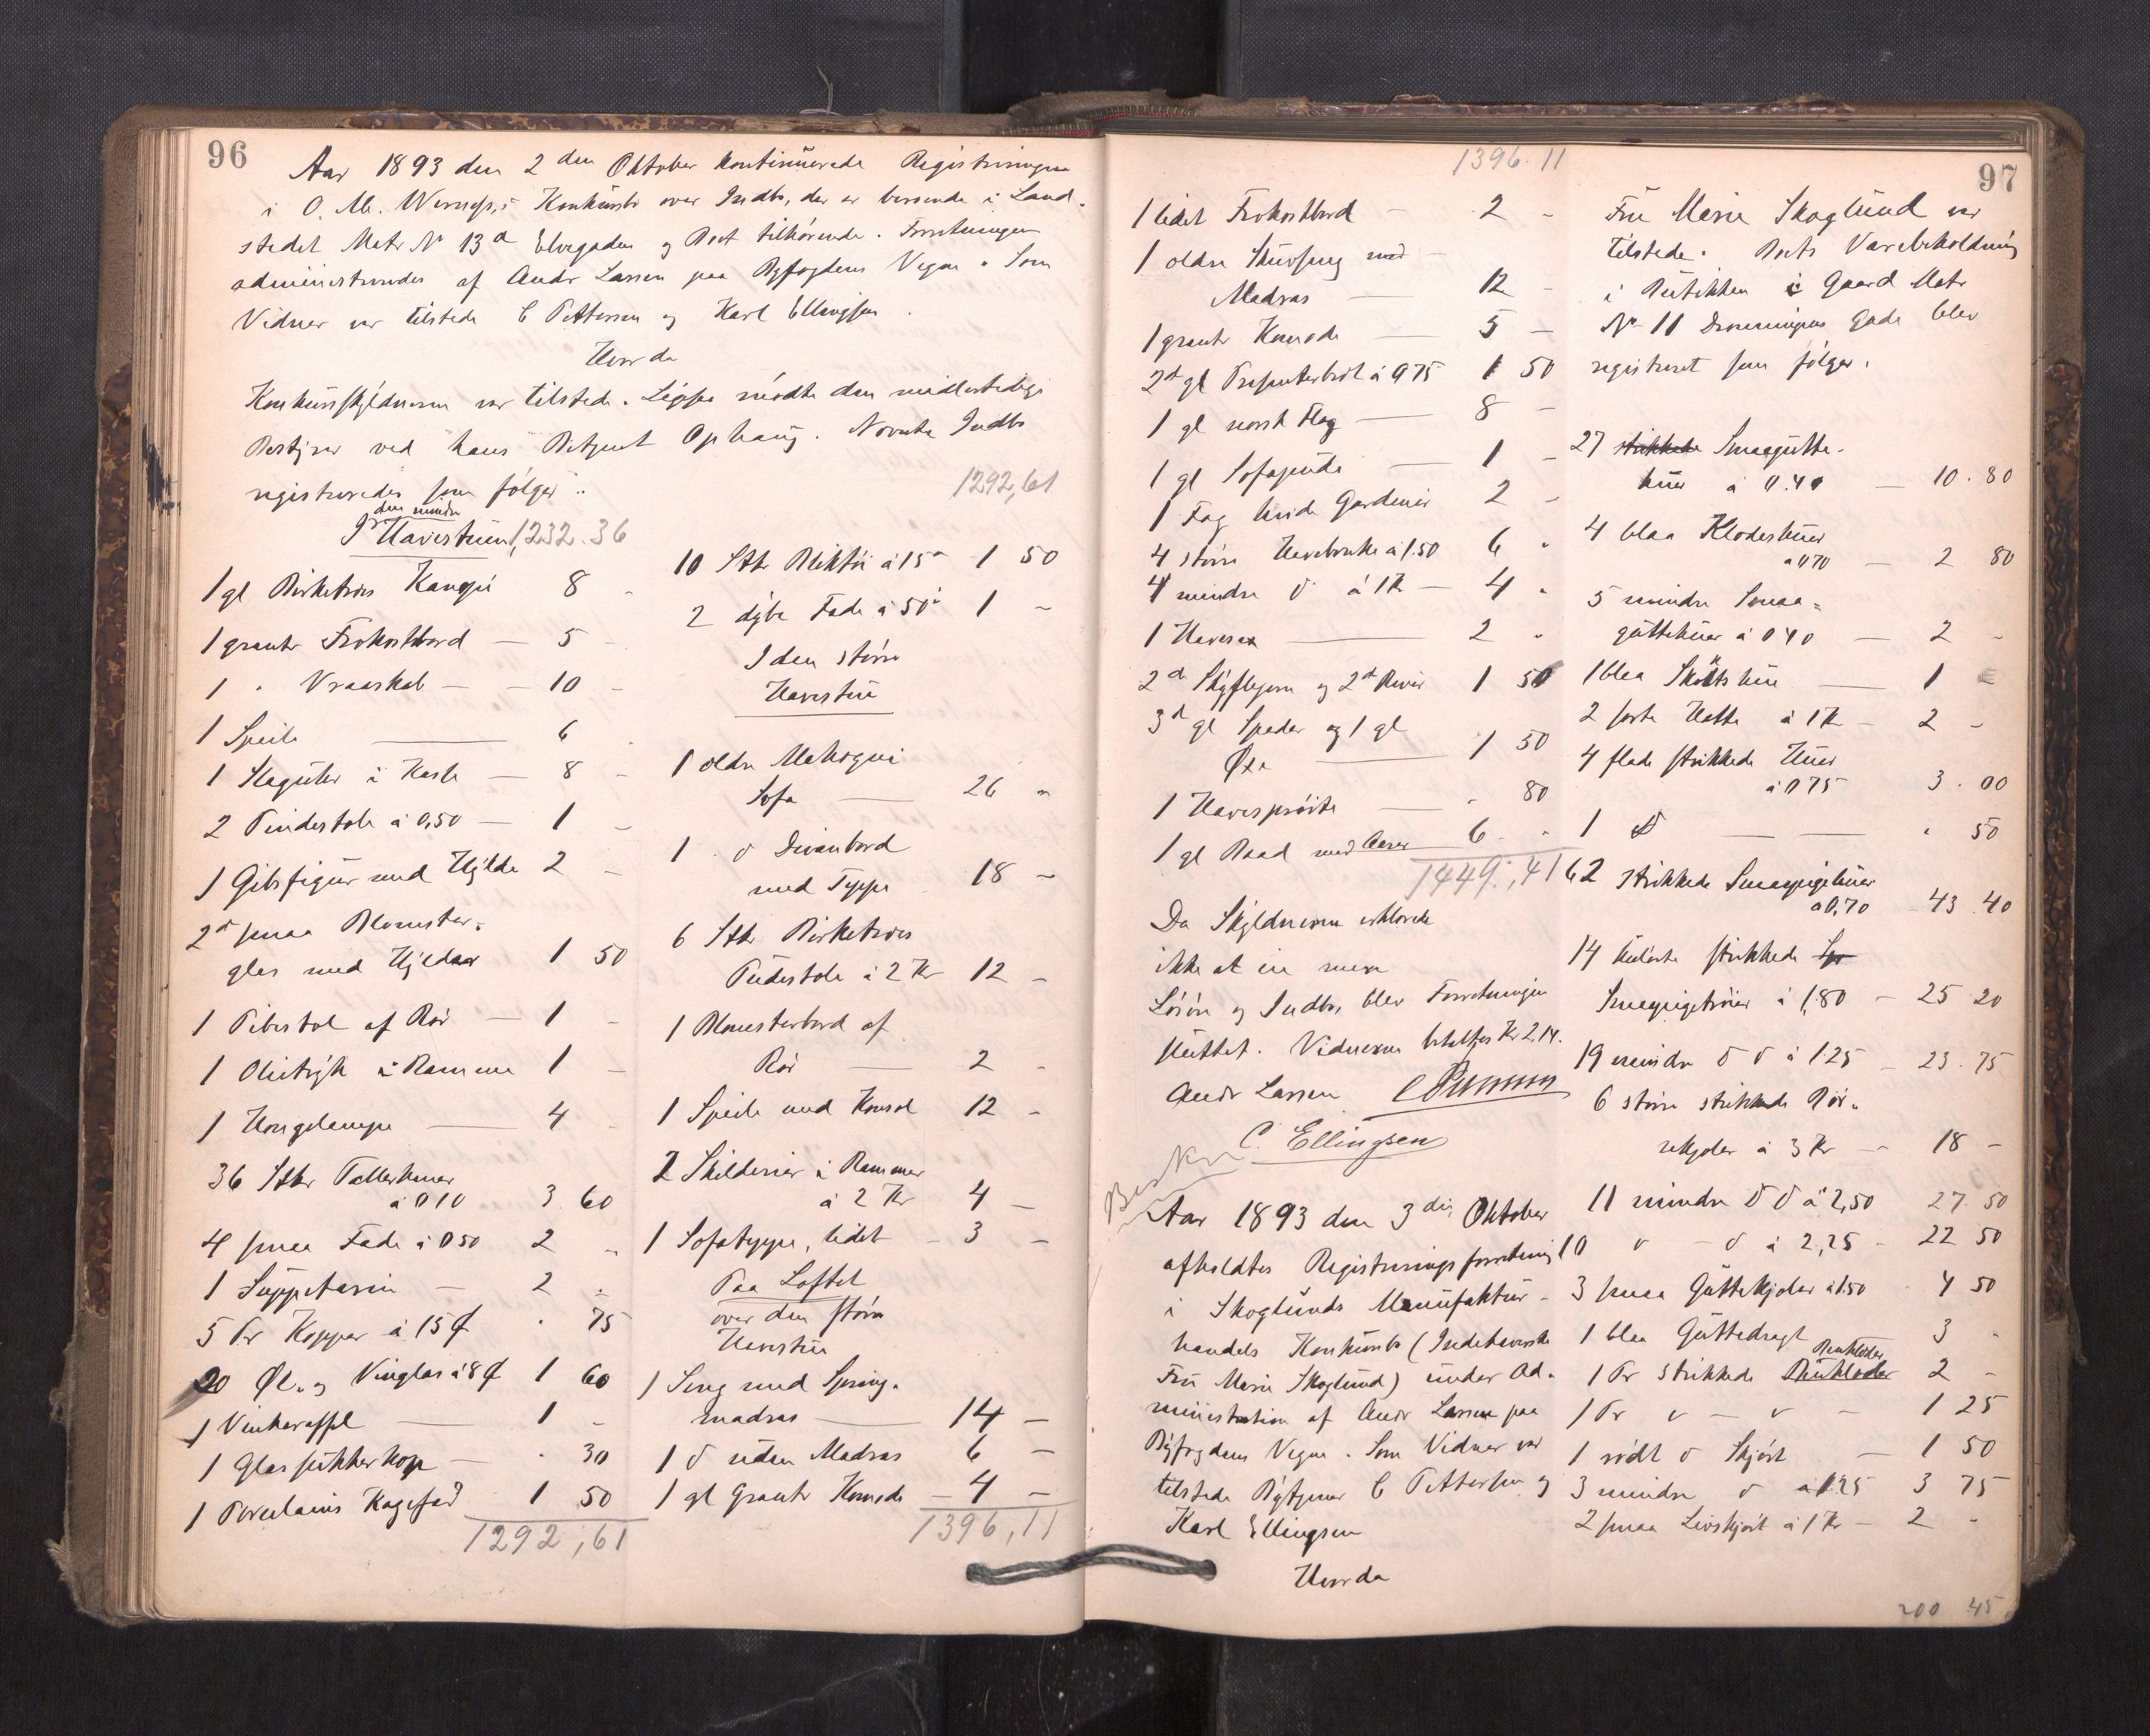 96
Aar 1893 den 2den Oktober kontinuerede Registreringen
i O. M. Konkursbo over Indbo, der er beroende i Land-
stedet Matr № 13a Elvegaden og Boet tilhörende. Forretningen
administreredes af Andr Larsen paa Byfogdens Vegne. Som
Vidner var tilstede C Pettersen og Karl Ellingsen.
Hvorda
Konkursskyldneren var tilstede. Ligesaa mödte den midlertidige
Bestyrer ved hans Betjent Ophaug. Nævnte Indbo
registreredes som fölger:
1292,61
den mindre
I Havestuen 1,232.36
1 gl Birketræs Kanapé 8 -
1 grant Frokostbord — 5 -
1 " Vraaskab — 10 -
1 Speile — 6 -
1 Staguhr i Kasse — 8 -
2 Pindestole á 0,50 — 1 -
1 Gibsfigur med Hylde 2 -
2de smaa Blomster-
glas med Hylder 1 50
1 Pibestol af Rör — 1 -
1 Olietryk i Ramme 1 -
1 Hængelampe — 4 -
36 Stkr Tallerkener
á 0 10 3 60
4 smaa Fade á 0 50 2 -
1 Suppeterin — 2 -
5 Pr Kopper á 15 Ø " 75
20 Øl- og Vinglas á 8 Ø 1 60
1 Vinkaraffel — 1 -
1 Glas sukkerkop — " 30
1 Porcelains Kagefad 1 50
1292,61
10 Stkr Bliktöi á 15 1 50
2 dybe Fade á 50 1 -
I den större
Havestue
1 oldre Mahogni
Sofa — 26 -
1 d Divanbord
med Tæppe 18 -
6 Stkr Birketræs
Pudestole á 2 Kr 12 -
1 Blomsterbord af
Rör — 2 -
1 Speile med Konsol 12 -
2 Skilderier i Rammer
á 2 Kr 4 -
1 Sofatæppe, lidet - 3 -
Paa Loftet
over den större
Havestue
1 Seng med Spring-
madras — 14 -
1 d uden Madras 6 -
1 gl Grant Komode - 4 -
1396,11
1396.11
97
1 lidet Frokostbord - 2 -
1 oldre med -
Madras — 12 -
1 grant Komode — 5 -
2de gl á 0 75 1 50
1 gl norsk Flag — 8 -
1 gl Sofapude — 1 -
1 Fag hvide Gardiner 2 -
4 större Havebænke á 1.50 6 -
4 mindre d á 1 Kr — 4 -
1 Havesax — 2 -
2de Skyfljern og 2de River 1 50
3de gl Spader og 1 gl
Øxe — 1 50
1 Havespröite — " 80
1 gl Baad med Aarer 6 -
1449,41
Da Skyldneren erklærede
ikke at eie mere
Lösöre og Indbo, blev Forretningen
sluttet. Vidnerne betaltes Kr 2.14.
Andr Larsen
C. Ellingsen
Aar 1893 den 3die Oktober
afholdtes Registreringsforretning
i Skoglunds Manufaktur-
handels Konkursbo (Indehaverske
Fru Marie Skoglund) under Ad-
ministration af Andr Larsen paa
Byfogdens Vegne. Som Vidner var
tilstede Bytjener C Pettersen og
Karl Ellingsen
Hvorda
Fru Marie Skoglund var
tilstede. Boets Varebeholdning
i Butikken i Gaard Matr
№ 11 Dronningens Gade blev
registreret som fölger:
27 strikkede Smaagutte-
huer á 0.40 — 10.80
4 blaa Klædeshuer
á 0 70 — 2 80
5 mindre Smaa-
guttehuer á 0 40 — 2 -
1 blaa hue — 1 -
2 sorte Hatte á 1 Kr — 2 -
4 flade strikkede Huer
á 0 75 3.00
1 d — " 50
62 strikkede Smaapigehuer
á 0,70 - 43.40
14 strikkede
Smaapigetröier á 1,80 - 25 20
19 mindre d d á 1 25 - 23.75
6 större strikkede Bör-
nekjoler á 3 Kr — 18 -
11 mindre d d á 2,50 27.50
10 d - d á 2,25 - 22 50
3 smaa Guttekjoler á 1.50 4 50
1 blaa Guttedragt 3 -
Benklæder
1 Pr Strikkede Benklæder 2 -
1 Pr d - d - 1 25
1 rödt d Skjört — 1 50
3 mindre d á 1 25 3 75
2 smaa Livskjört á 1 Kr — 2 -
200 45